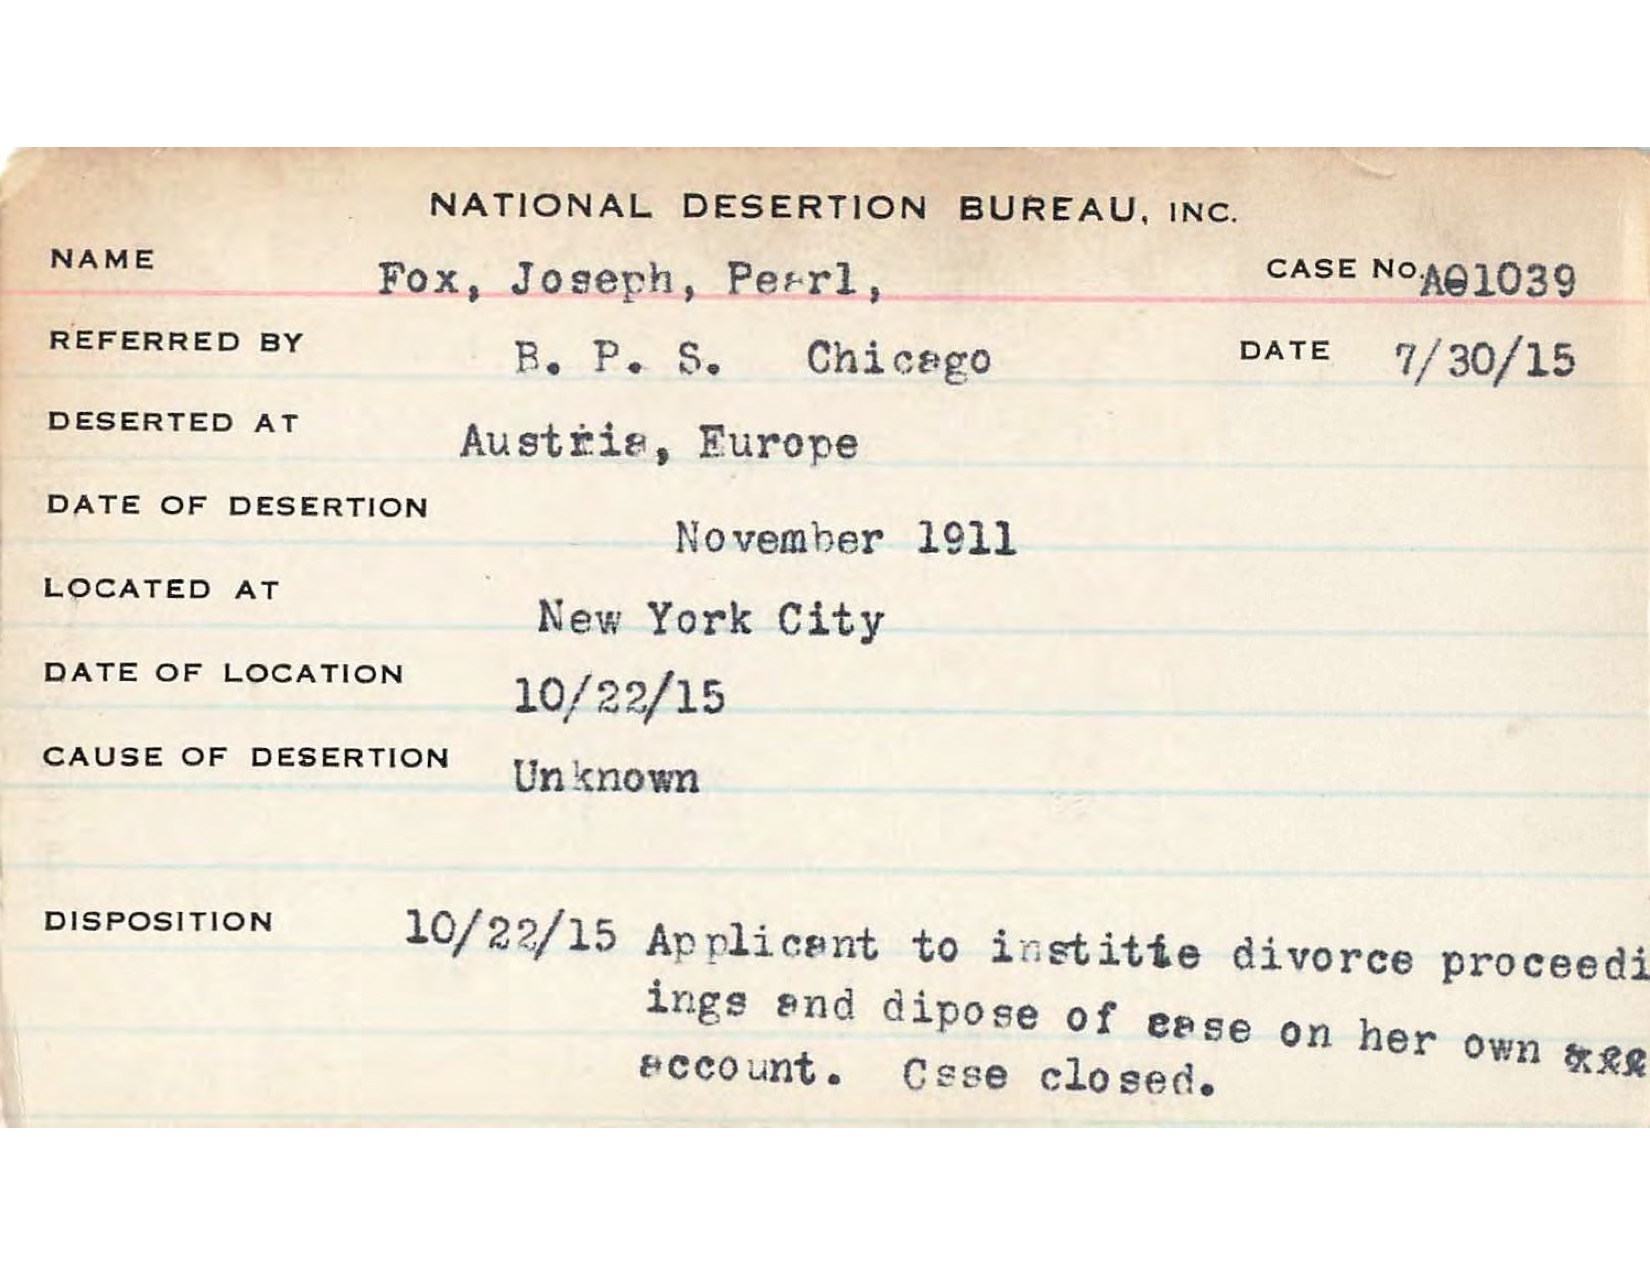 NATIONAL DESERTION BUREAU, INC.
NAME Fox, Joseph, Pearl, CASE No. A01039
REFERRED BY B. P. S. Chicago DATE 7/30/15
DESERTED AT Austria, Europe
DATE OF DESERTION November 1911
LOCATED AT New York City
DATE OF LOCATION 10/22/15
CAUSE OF DESERTION Unknown
DISPOSITION 10/22/15 Applicant to divorce proceedi
ings and dipose of case on her own
account. Csse closed.